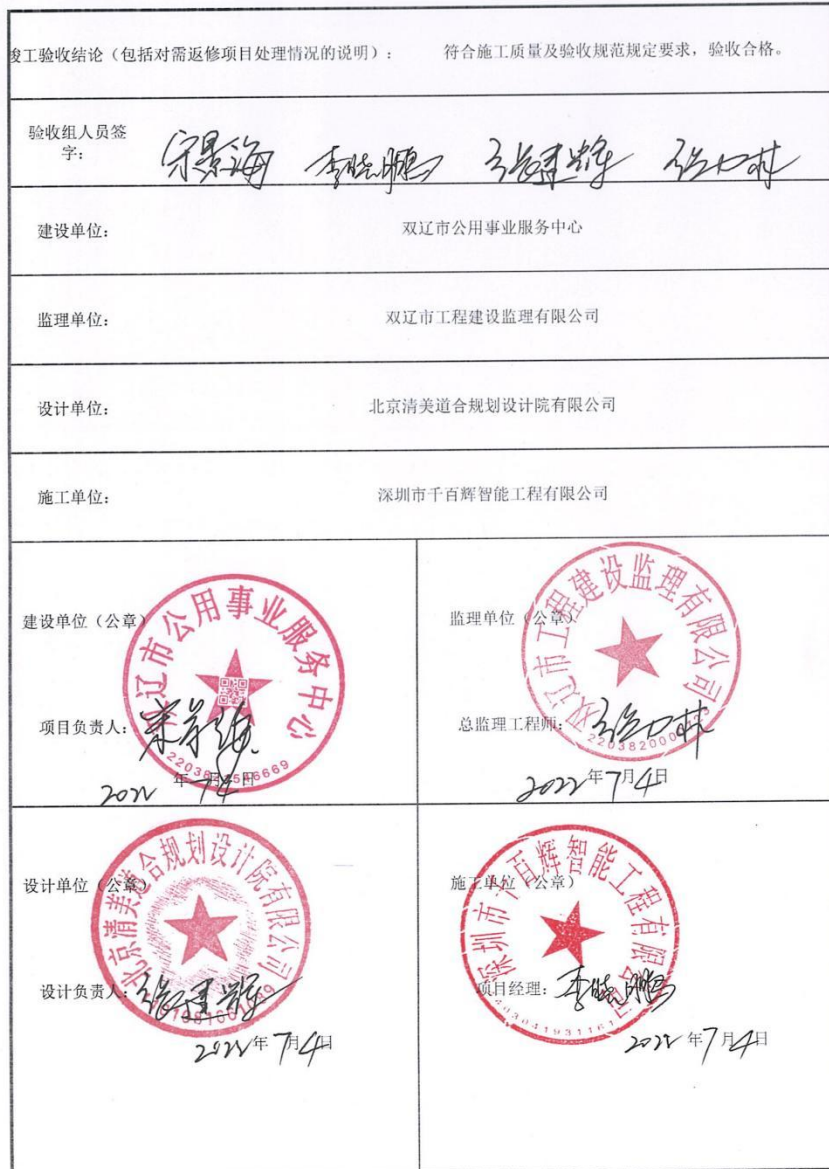 竣工验收结论（包括对需返修项目处理情况的说明）： 符合施工质量及验收规范规定要求，验收合格。
验收组人员签
字：
宋景海 李晓鹏 张建辉 张力林
建设单位： 双辽市公用事业服务中心
监理单位： 双辽市工程建设监理有限公司
设计单位： 北京清美道合规划设计院有限公司
施工单位： 深圳市千百辉智能工程有限公司
建设单位（公章）
双辽市公用事业服务中心
项目负责人：宋景海
2022年7月4日
监理单位（公章）
双辽市工程建设监理有限公司
总监理工程师：张力林
2022年7月4日
设计单位（公章）
北京清美道合规划设计院有限公司
设计负责人：张建辉
2022年7月4日
施工单位（公章）
深圳市千百辉智能工程有限公司
项目经理：李晓鹏
2022年7月4日